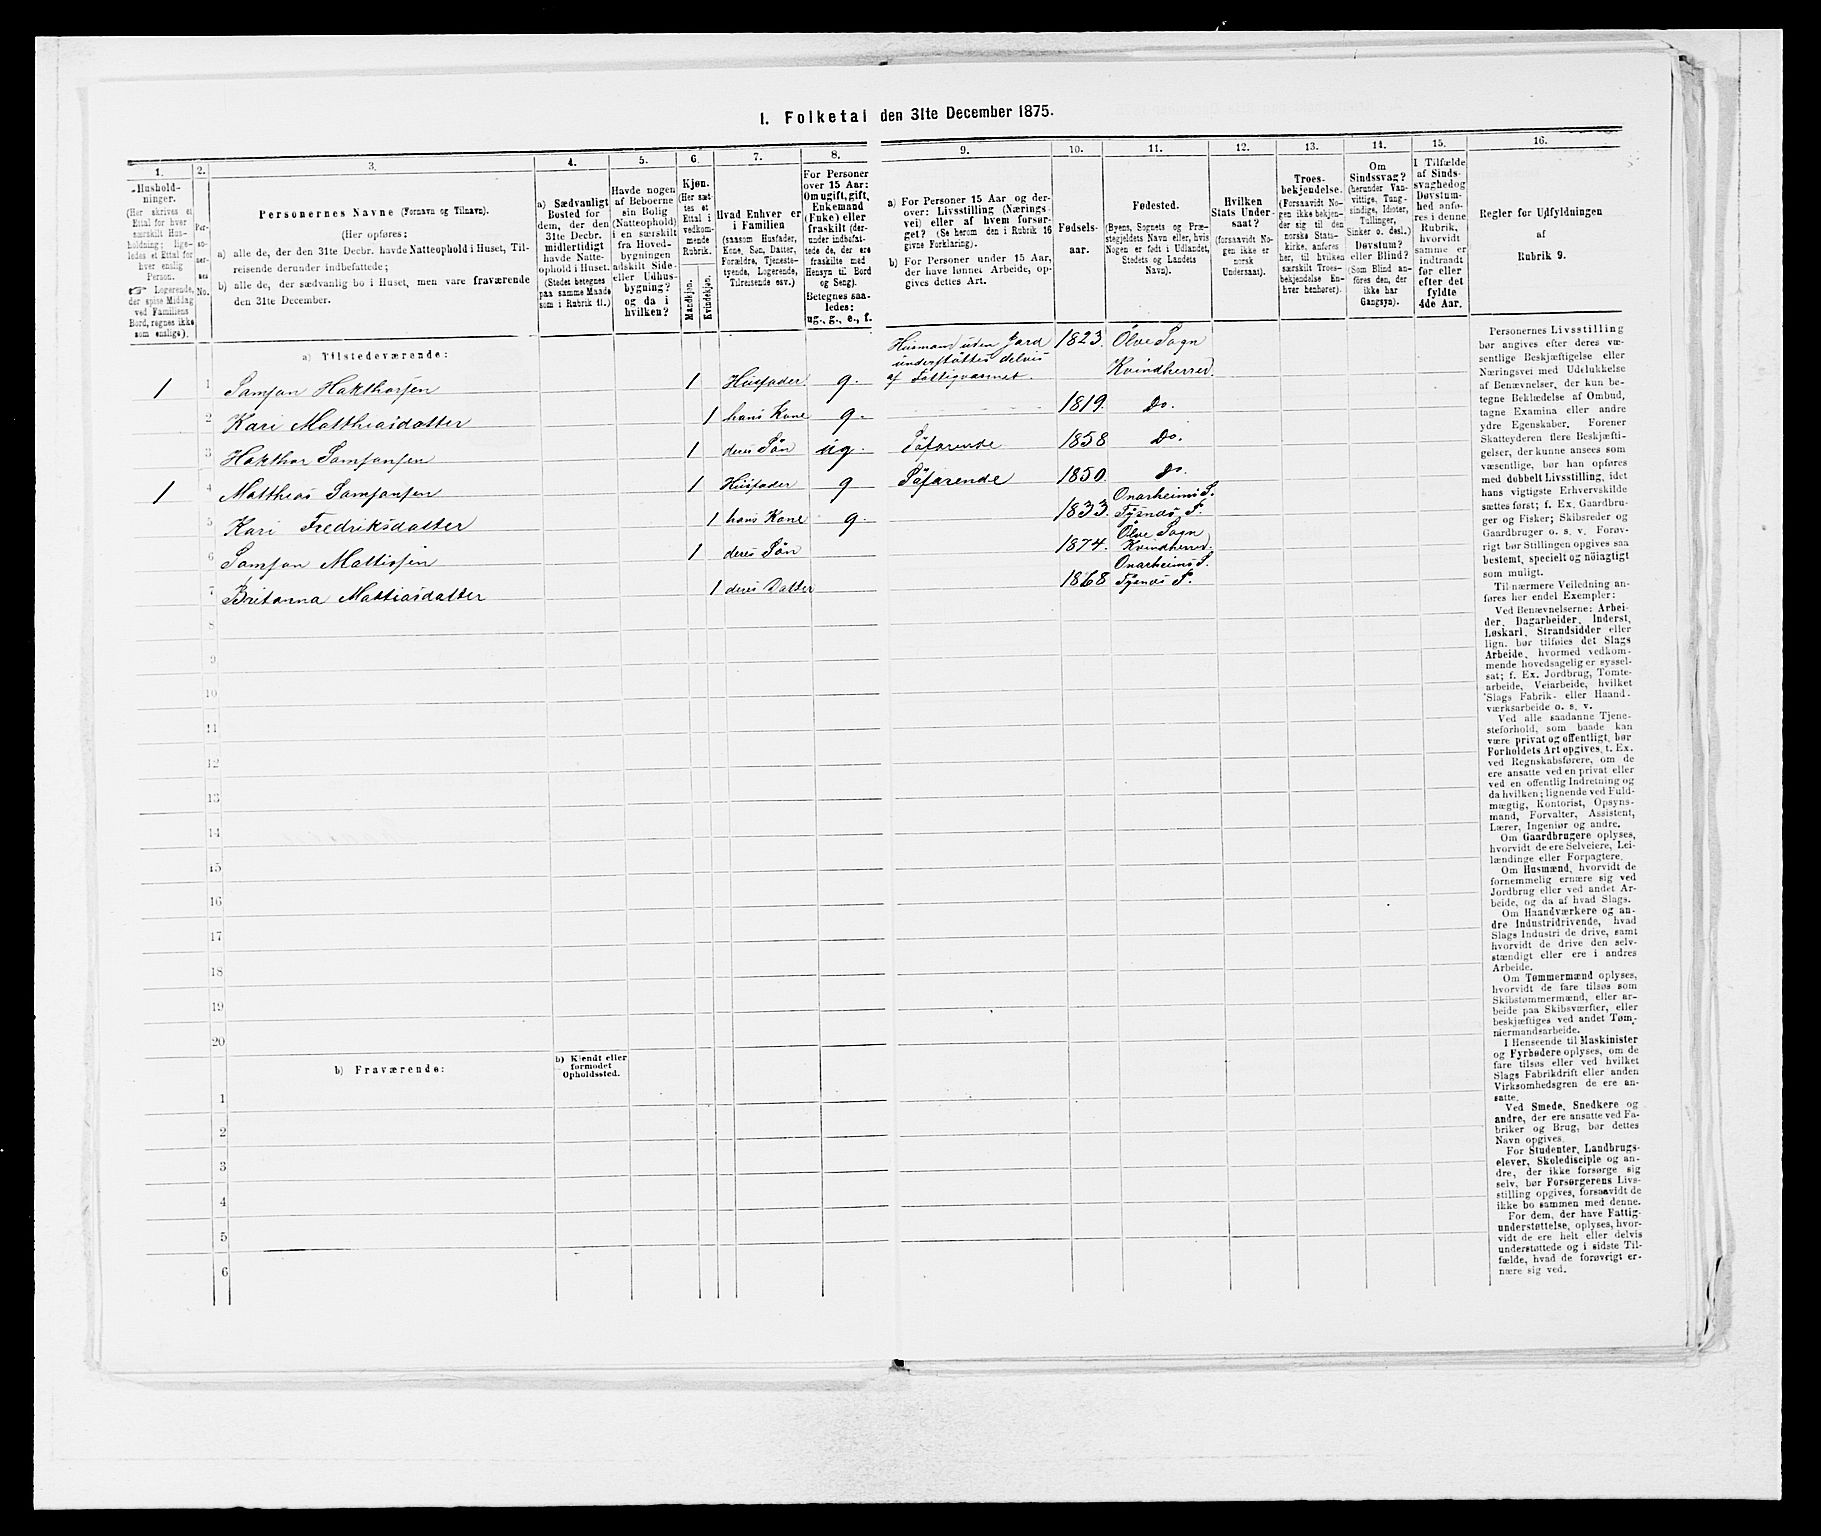 1. Folketal den 31te December 1875.
1. 2. 3. 4. 5. 6. 7. 8. 9. 10. 11. 12. 13. 14. 15. 16.
Hushold-
ninger.
(Her skrives et
Ettal for hver
særskilt Hus-
holdning; lige-
ledes et Ettal for
hver enslig
Person.
☞ Logerende,
der spise Middag
ved Familiens
Bord, regnes ikke
som enslige).
Per-
so-
ner-
nes
No.
Personernes Navne (Fornavn og Tilnavn).
(Her opføres:
a) alle de, der den 31te Decbr. havde Natteophold i Huset, Til-
reisende derunder indbefattede;
b) alle de, der sædvanlig bo i Huset, men vare fraværende
den 31te December.
a) Sædvanligt
Bosted for
dem, der den
31te Decbr.
midlertidigt
havde Natte-
ophold i Huset.
(Stedet betegnes
paa samme Maade
som i Rubrik 11.)
Havde nogen
af Beboerne
sin Bolig
(Natteophold)
i en særskilt
fra Hoved-
bygningen
adskilt Side-
eller Udhus-
bygning?
og da i
hvilken?
Kjøn.
(Her sæt-
tes et
Ettal i
vedkom-
mende
Rubrik.)
Mandkjøn.
Kvindekjøn.
Hvad Enhver er
i Familien
(saasom Husfader,
Kone, Søn, Datter,
Forældre, Tjeneste-
tyende, Logerende,
Tilreisende osv.)
For Personer
over 15 Aar:
Om ugift, gift,
Enkemand
(Enke) eller
fraskilt (der-
under indbefat-
tede de, der ere
fraskilte med
Hensyn til Bord
og Seng).
Betegnes saa-
ledes:
ug., g., e., f.
a) For Personer 15 Aar og der-
over: Livsstilling (Nærings-
vei) eller af hvem forsør-
get? (Se herom den i Rubrik 16
givne Forklaring).
b) For Personer under 15 Aar,
der have lønnet Arbeide, op-
gives dettes Art.
Fødsels-
aar.
Fødested.
(Byens, Sognets og Præ-
stegjeldets Navn eller, hvis
Nogen er født i Udlandet,
Stedets og Landets
Navn).
Hvilken
Stats Under-
saat?
(forsaavidt No-
gen ikke er
norsk
Undersaat).
Troes-
bekjendelse.
(Forsaavidt No-
gen ikke bekjen-
der sig til den
norske Stats-
kirke, anføres
her, til hvilken
særskilt Troes-
bekjendelse En-
hver henhører).
Om
Sindssvag?
(herunder Van-
vittige, Tung-
sindige, Idioter,
Tullinger,
Sinker o. desl.)
Døvstum?
eller Blind?
(Som Blind an-
føres den, der
ikke har
Gangsyn).
I Tilfælde
af Sinds-
svaghed og
Døvstum-
hed anfø-
res i denne
Rubrik,
hvorvidt
samme er
indtraadt
før eller
efter det
fyldte
4de Aar.
Regler for Udfyldningen
af
Rubrik 9.
a) Tilstedeværende:
1 1 Samson Hakthorsen 1 Husfader g. Husmand uden Jord understøttes delvis af Fattigvæsnet. 1823. Ølve Sogn Kvindherred.
2 Kari Matthiasdatter 1 hans Kone g. 1819. Do.
3 Hakthor Samsonsen 1 deres Søn ug. Søfarende 1858 Do.
1 4 Matthias Samsonsen 1 Husfader g Søfarende 1850. Do.
5 Kari Fredriksdatter 1 hans Kone g. 1833. Onarheims S. Tysnes P.
6 Samson Mattissen 1 deres Søn 1874. Ølve Sogn Kvindherred.
7 Britanna Mattiasdatter 1 deres Datter 1868 Onarheims S. Tysnes P.
8
9
10
11
12
13
14
15
16
17
18
19
20
b) Fraværende:
b) Kjendt eller
formodet
Opholdssted.
1
2
3
4
5
6
Personernes Livsstilling
bør angives efter deres væ-
sentlige Beskjæftigelse eller
Næringsvei med Udelukkelse
af Benævnelser, der kun be-
tegne Beklædelse af Ombud,
tagne Examina eller andre
ydre Egenskaber. Forener
Skatteyderen flere Beskjæfti-
gelser, der kunne ansees som
væsentlige, bør han opføres
med dobbelt Livsstilling, idet
hans vigtigste Erhvervskilde
sættes først; f. Ex. Gaardbru-
ger og Fisker; Skibsreder og
Gaardbruger o. s. v. Forøv-
rigt bør Stillingen opgives saa
bestemt, specielt og nøiagtigt
som muligt.
Til nærmere Veiledning an-
føres her endel Exempler:
Ved Benævnelserne: Arbei-
der, Dagarbeider, Inderst,
Løskarl, Strandsidder eller
lign. bør tilføies det Slags
Arbeide, hvormed vedkom-
mende hovedsagelig er syssel-
sat; f. Ex. Jordbrug, Tomte-
arbeide, Veiarbeide, hvilket
Slags Fabrik- eller Haand-
værksarbeide o. s. v.
Ved alle saadanne Tjene-
steforhold, som baade kan
være privat og offentligt, bør
Forholdets Art opgives, t. Ex.
ved Regnskabsførere, om de
ere ansatte ved en privat eller
ved en offentlig Indretning og
da hvilken; lignende ved Fuld-
mægtig, Kontorist, Opsyns-
mand, Forvalter, Assistent,
Lærer, Ingeniør og andre.
Om Gaardbrugere oplyses,
hvorvidt de ere Selveiere, Lei-
lændinge eller Forpagtere.
Om Husmænd, hvorvidt de
fornemmelig ernære sig ved
Jordbrug eller ved andet Ar-
beide, og da af hvad Slags.
Om Haandværkere og an-
dre Industridrivende, hvad
Slags Industri de drive, samt
hvorvidt de drive den selv-
stændigt eller ere i andres
Arbeide.
Om Tømmermænd oplyses,
hvorvidt de fare tilsøs som
Skibstømmermænd, eller ar-
beide paa Skibsværfter, eller
beskjæftiges ved andet Tøm-
mermandsarbeide.
I Henseende til Maskinister
og Fyrbødere oplyses, om de
fare tilsøs eller ved hvilket
Slags Fabrikdrift eller anden
Virksomhedsgren de ere an-
satte.
Ved Smede, Snedkere og
andre, der ere ansatte ved Fa-
briker og Brug, bør dettes
Navn opgives.
For Studenter, Landbrugs-
elever, Skoledisciple og an-
dre, der ikke forsørge sig
selv, bør Forsørgerens Livs-
stilling opgives, forsaavidt de
ikke bo sammen med denne.
For dem, der have Fattig-
understøttelse, oplyses, hvor-
vidt de ere helt eller delvis
understøttede og i sidste Til-
fælde, hvad de forøvrigt er-
nære sig ved.